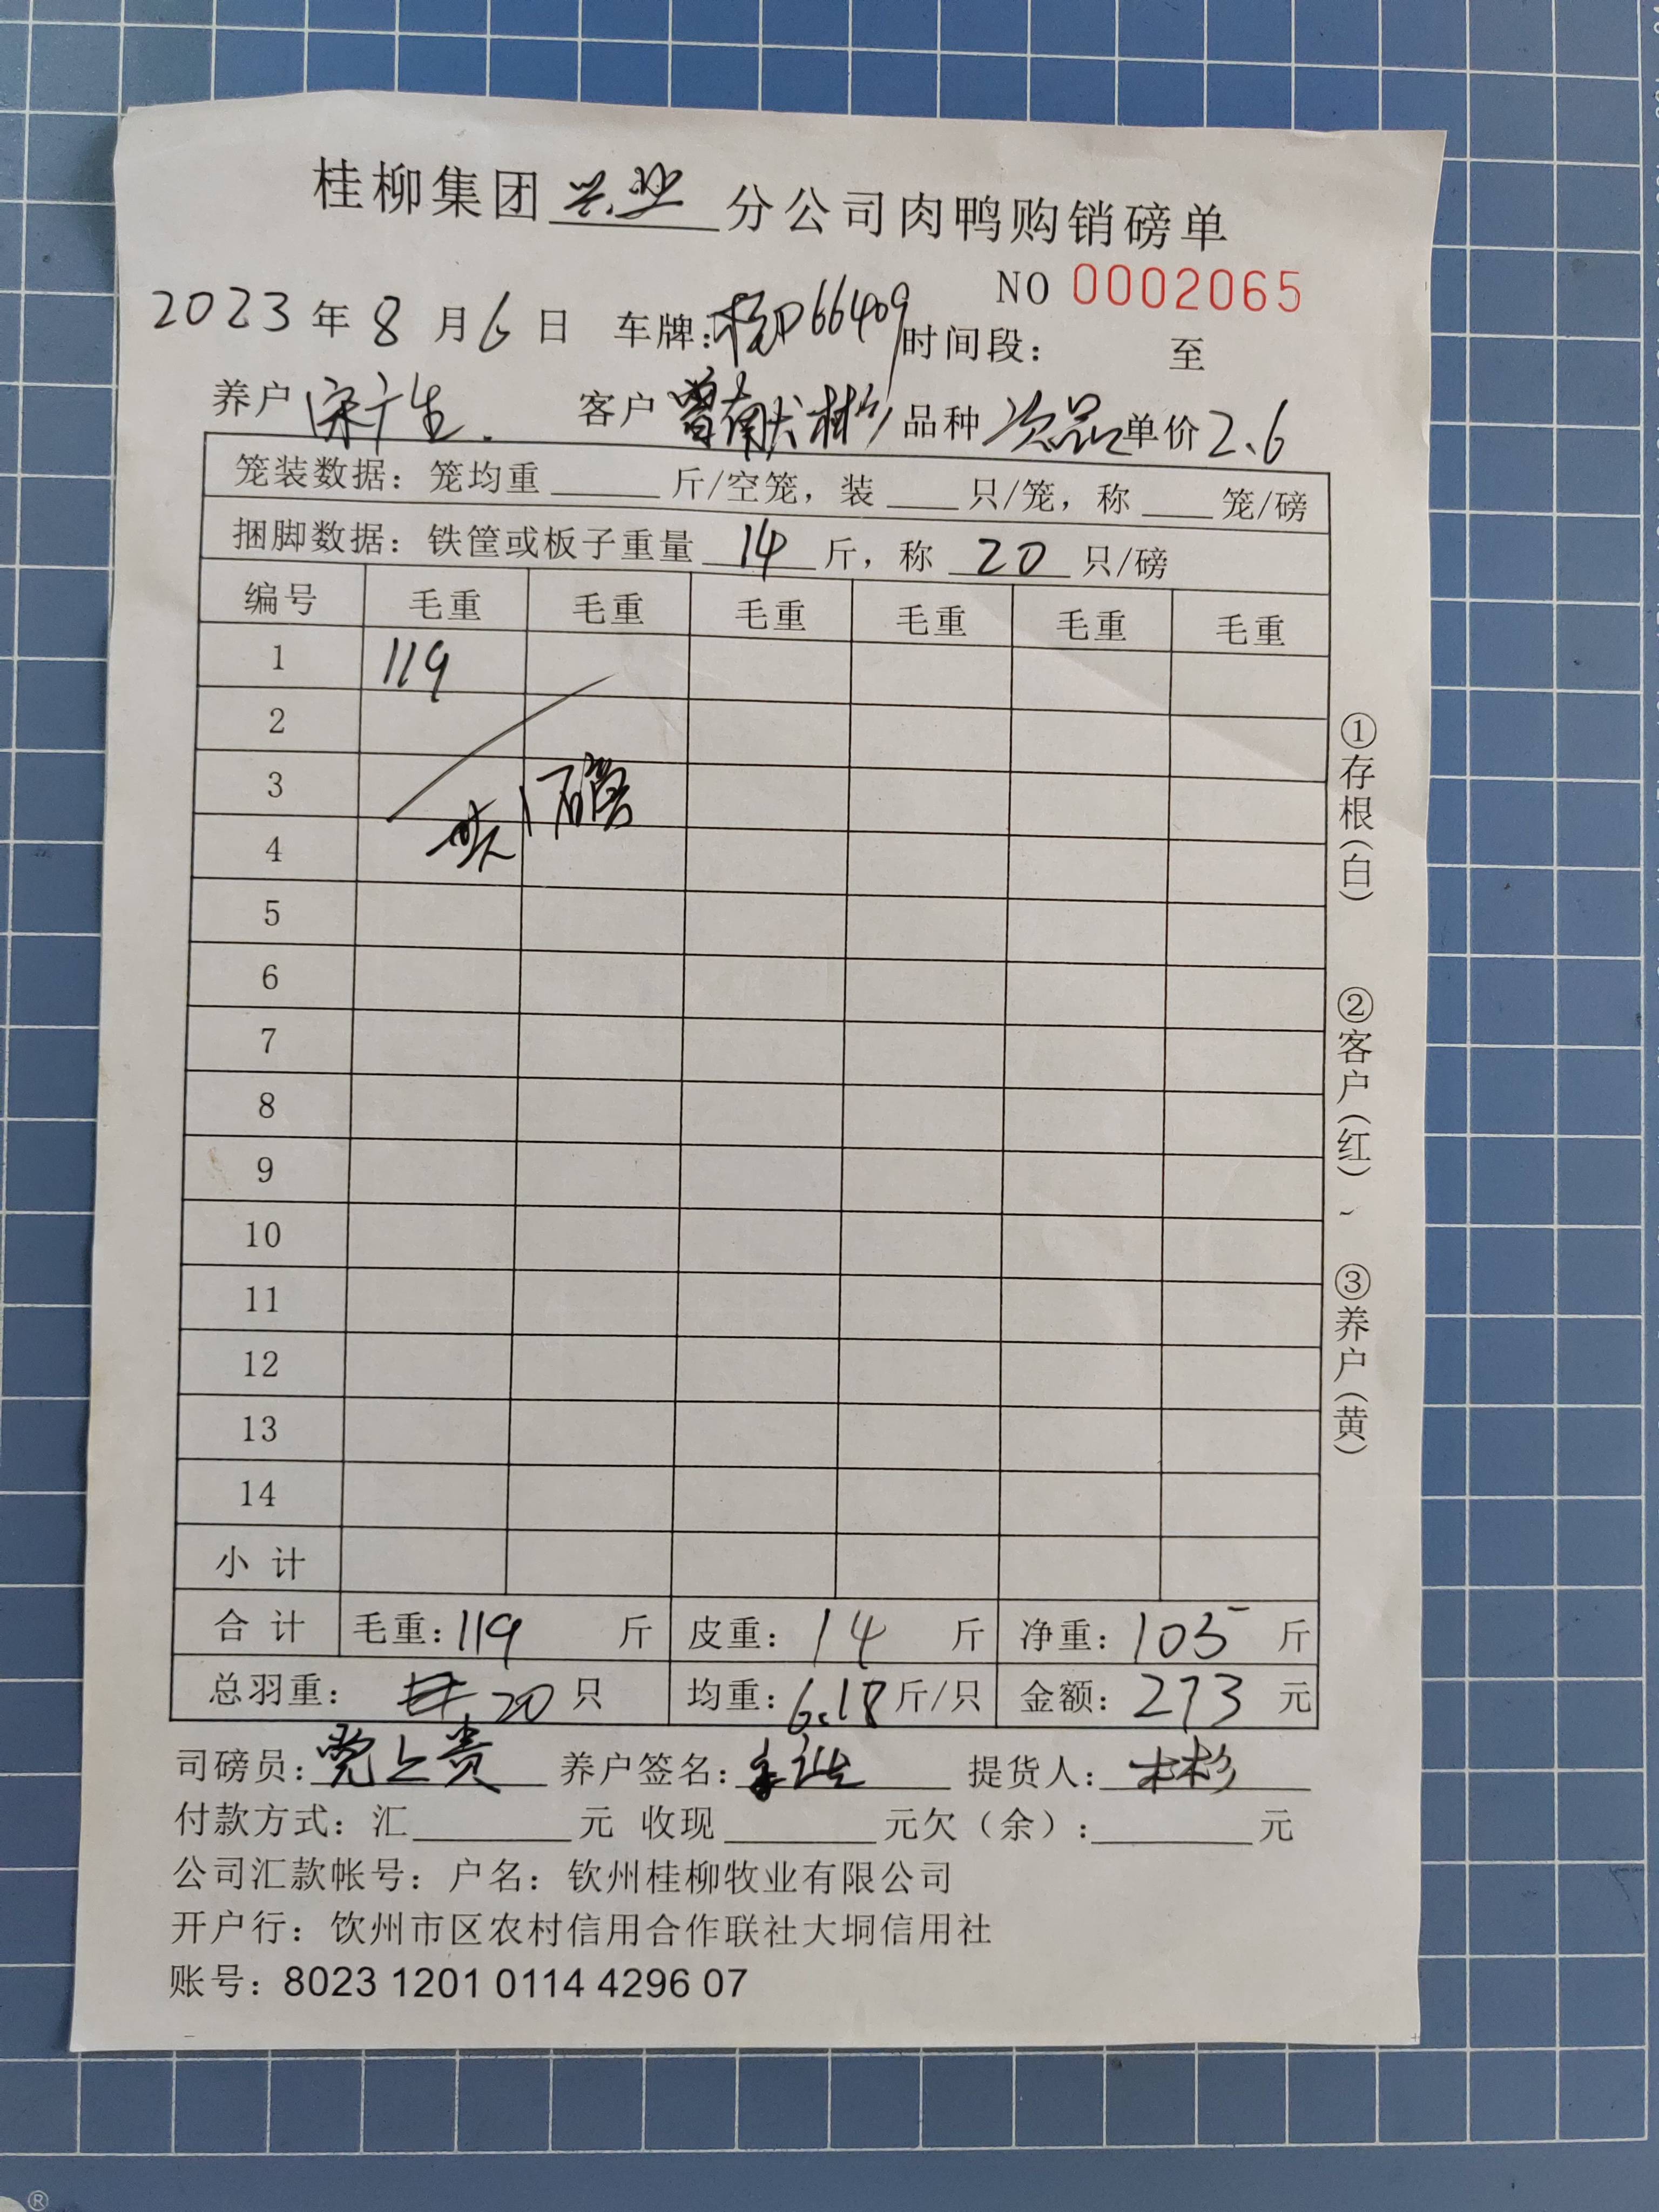 桂柳集团兴业分公司肉鸭购销磅单
NO 0002065
2023年8月6日 车牌:桂P66409 时间段: 至
养户 宋广生. 客户 曾献彬 品种 次品 单价 2.6
笼装数据:笼均重______斤/空笼,装____只/笼,称____笼/磅
捆脚数据:铁筐或板子重量 14 斤,称 20 只/磅
编号 毛重 毛重 毛重 毛重 毛重 毛重
1 119
2
3
4 共1磅
5
6
7
8
9
10
11
12
13
14
小计
合计 毛重:119 斤 皮重:14 斤 净重:105 斤
总羽重: 20只 均重:6.18斤/只 金额:273 元
司磅员: 养户签名: 提货人:木杉
付款方式:汇________元 收现________元欠(余):________元
公司汇款帐号:户名:钦州桂柳牧业有限公司
开户行:饮州市区农村信用合作联社大垌信用社
账号:8023 1201 0114 4296 07
①存根(白)
②客户(红)
③养户(黄)